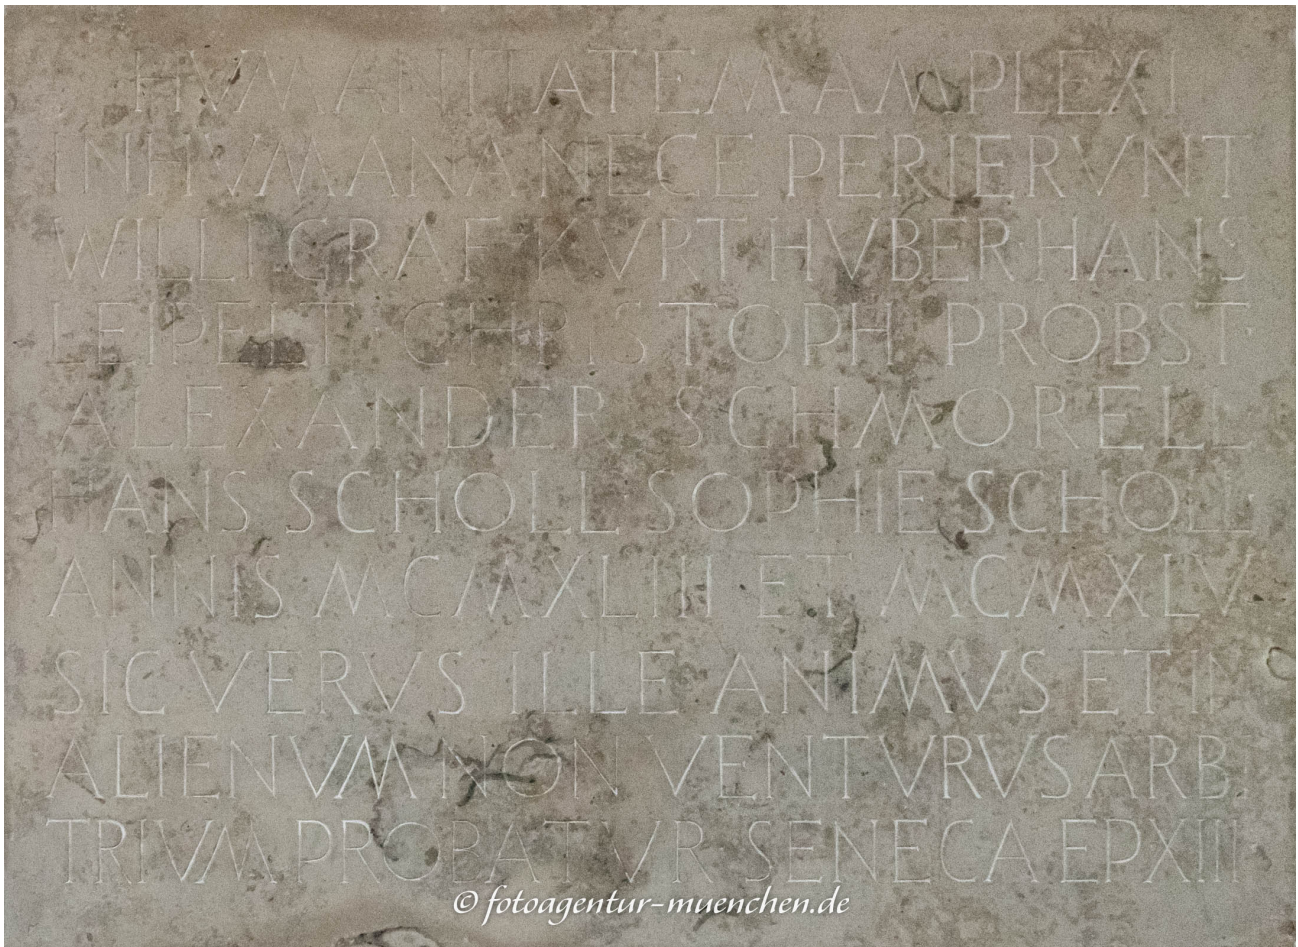 HVMANITATEM AMPLEXI
INHVMANA NECE PERIERVNT
WILLI·GRAF·KVRT·HVBER·HANS
LEIPELT·CHRISTOPH PROBST·
ALEXANDER SCHMORELL
HANS SCHOLL·SOPHIE SCHOLL·
ANNIS MCMXLIII ET MCMXLV
SIC VERVS ILLE ANIMVS ET IN
ALIENVM NON VENTVRVS ARB.
TRIVM PROBATVR SENECA EP XIII
© fotoagentur-muenchen.de